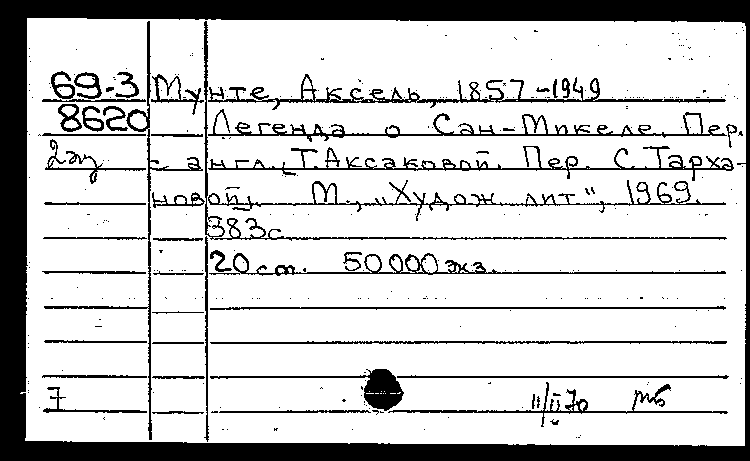 69-3 Мунте, Аксель, 1857-1949
8620 Легенда о Сан-Микеле. Пер.
2 эк с англ. [Т. Аксаковой. Пер. С. Тарха-
новой]. М., „Худож. лит.", 1969.
383 с.
20 см. 50000 экз.
7 11/II 70